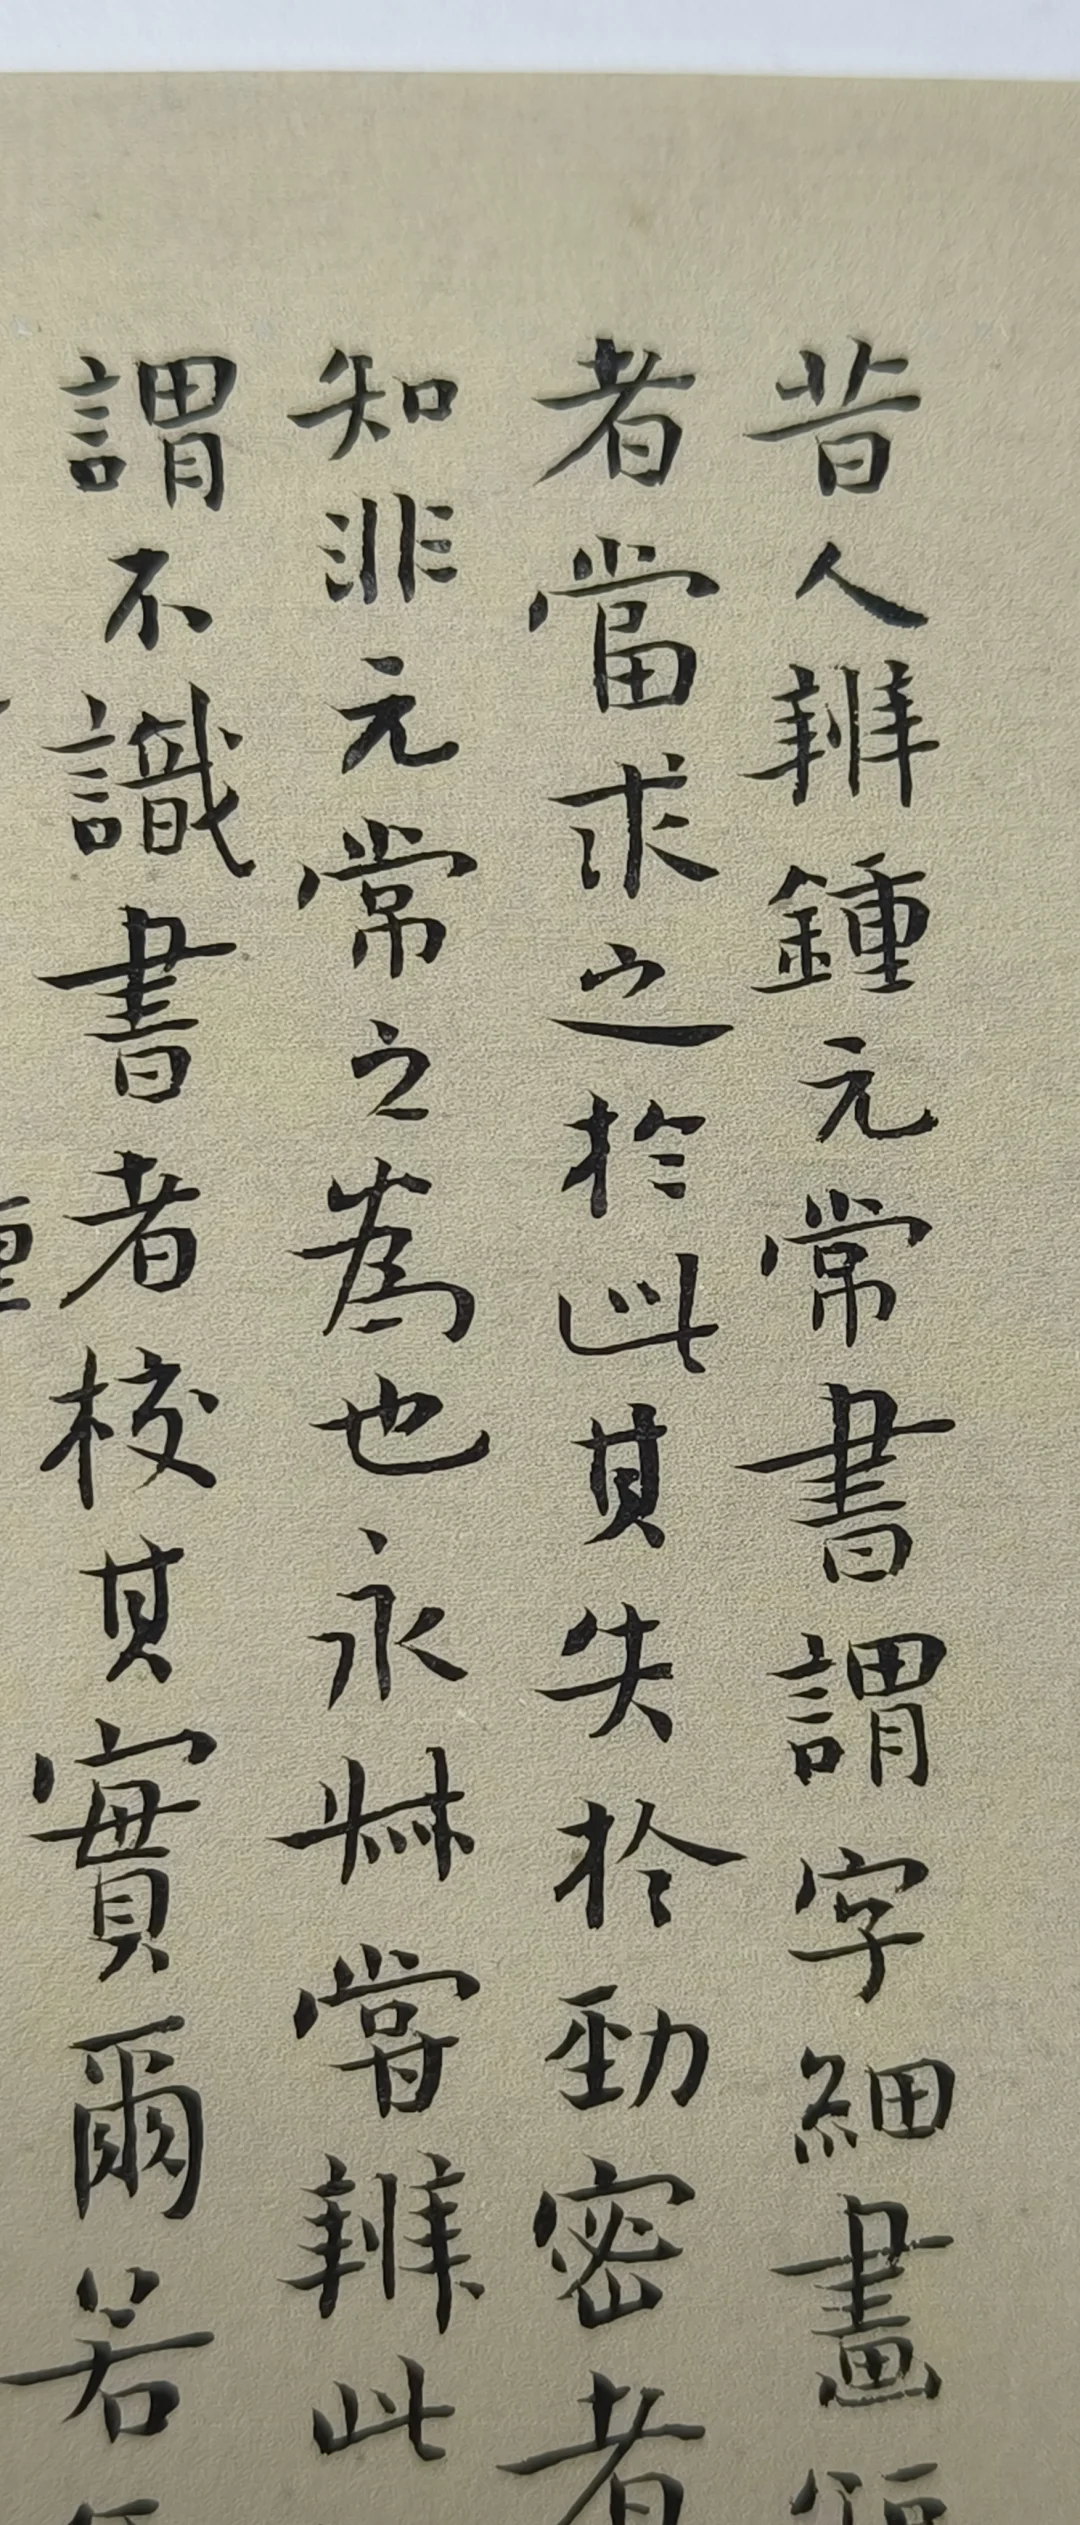 昔人辨鍾元常書謂字細畫
者當求之於此其失於勁密者
知非元常之為也永叔嘗辨此
謂不識書者校其實爾若